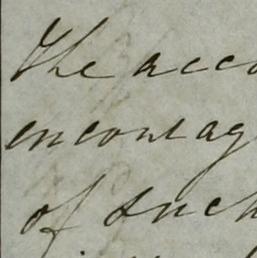 The acco
encourag
of such